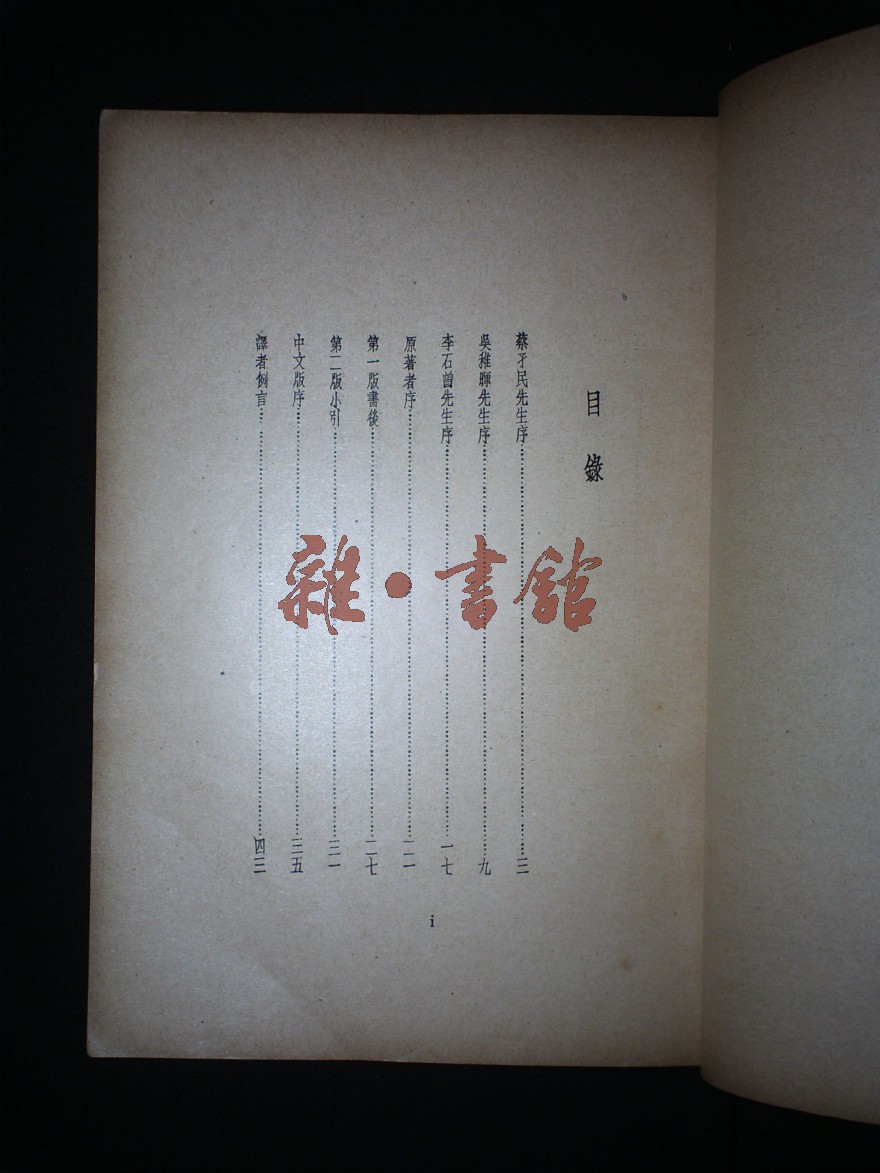 目錄
蔡孑民先生序……三
吳稚暉先生序……九
李石曾先生序……一七
原著者序……二一
第一版書後……二七
第二版小引……三一
中文版序……三五
譯者例言……四三
i
雜·書館